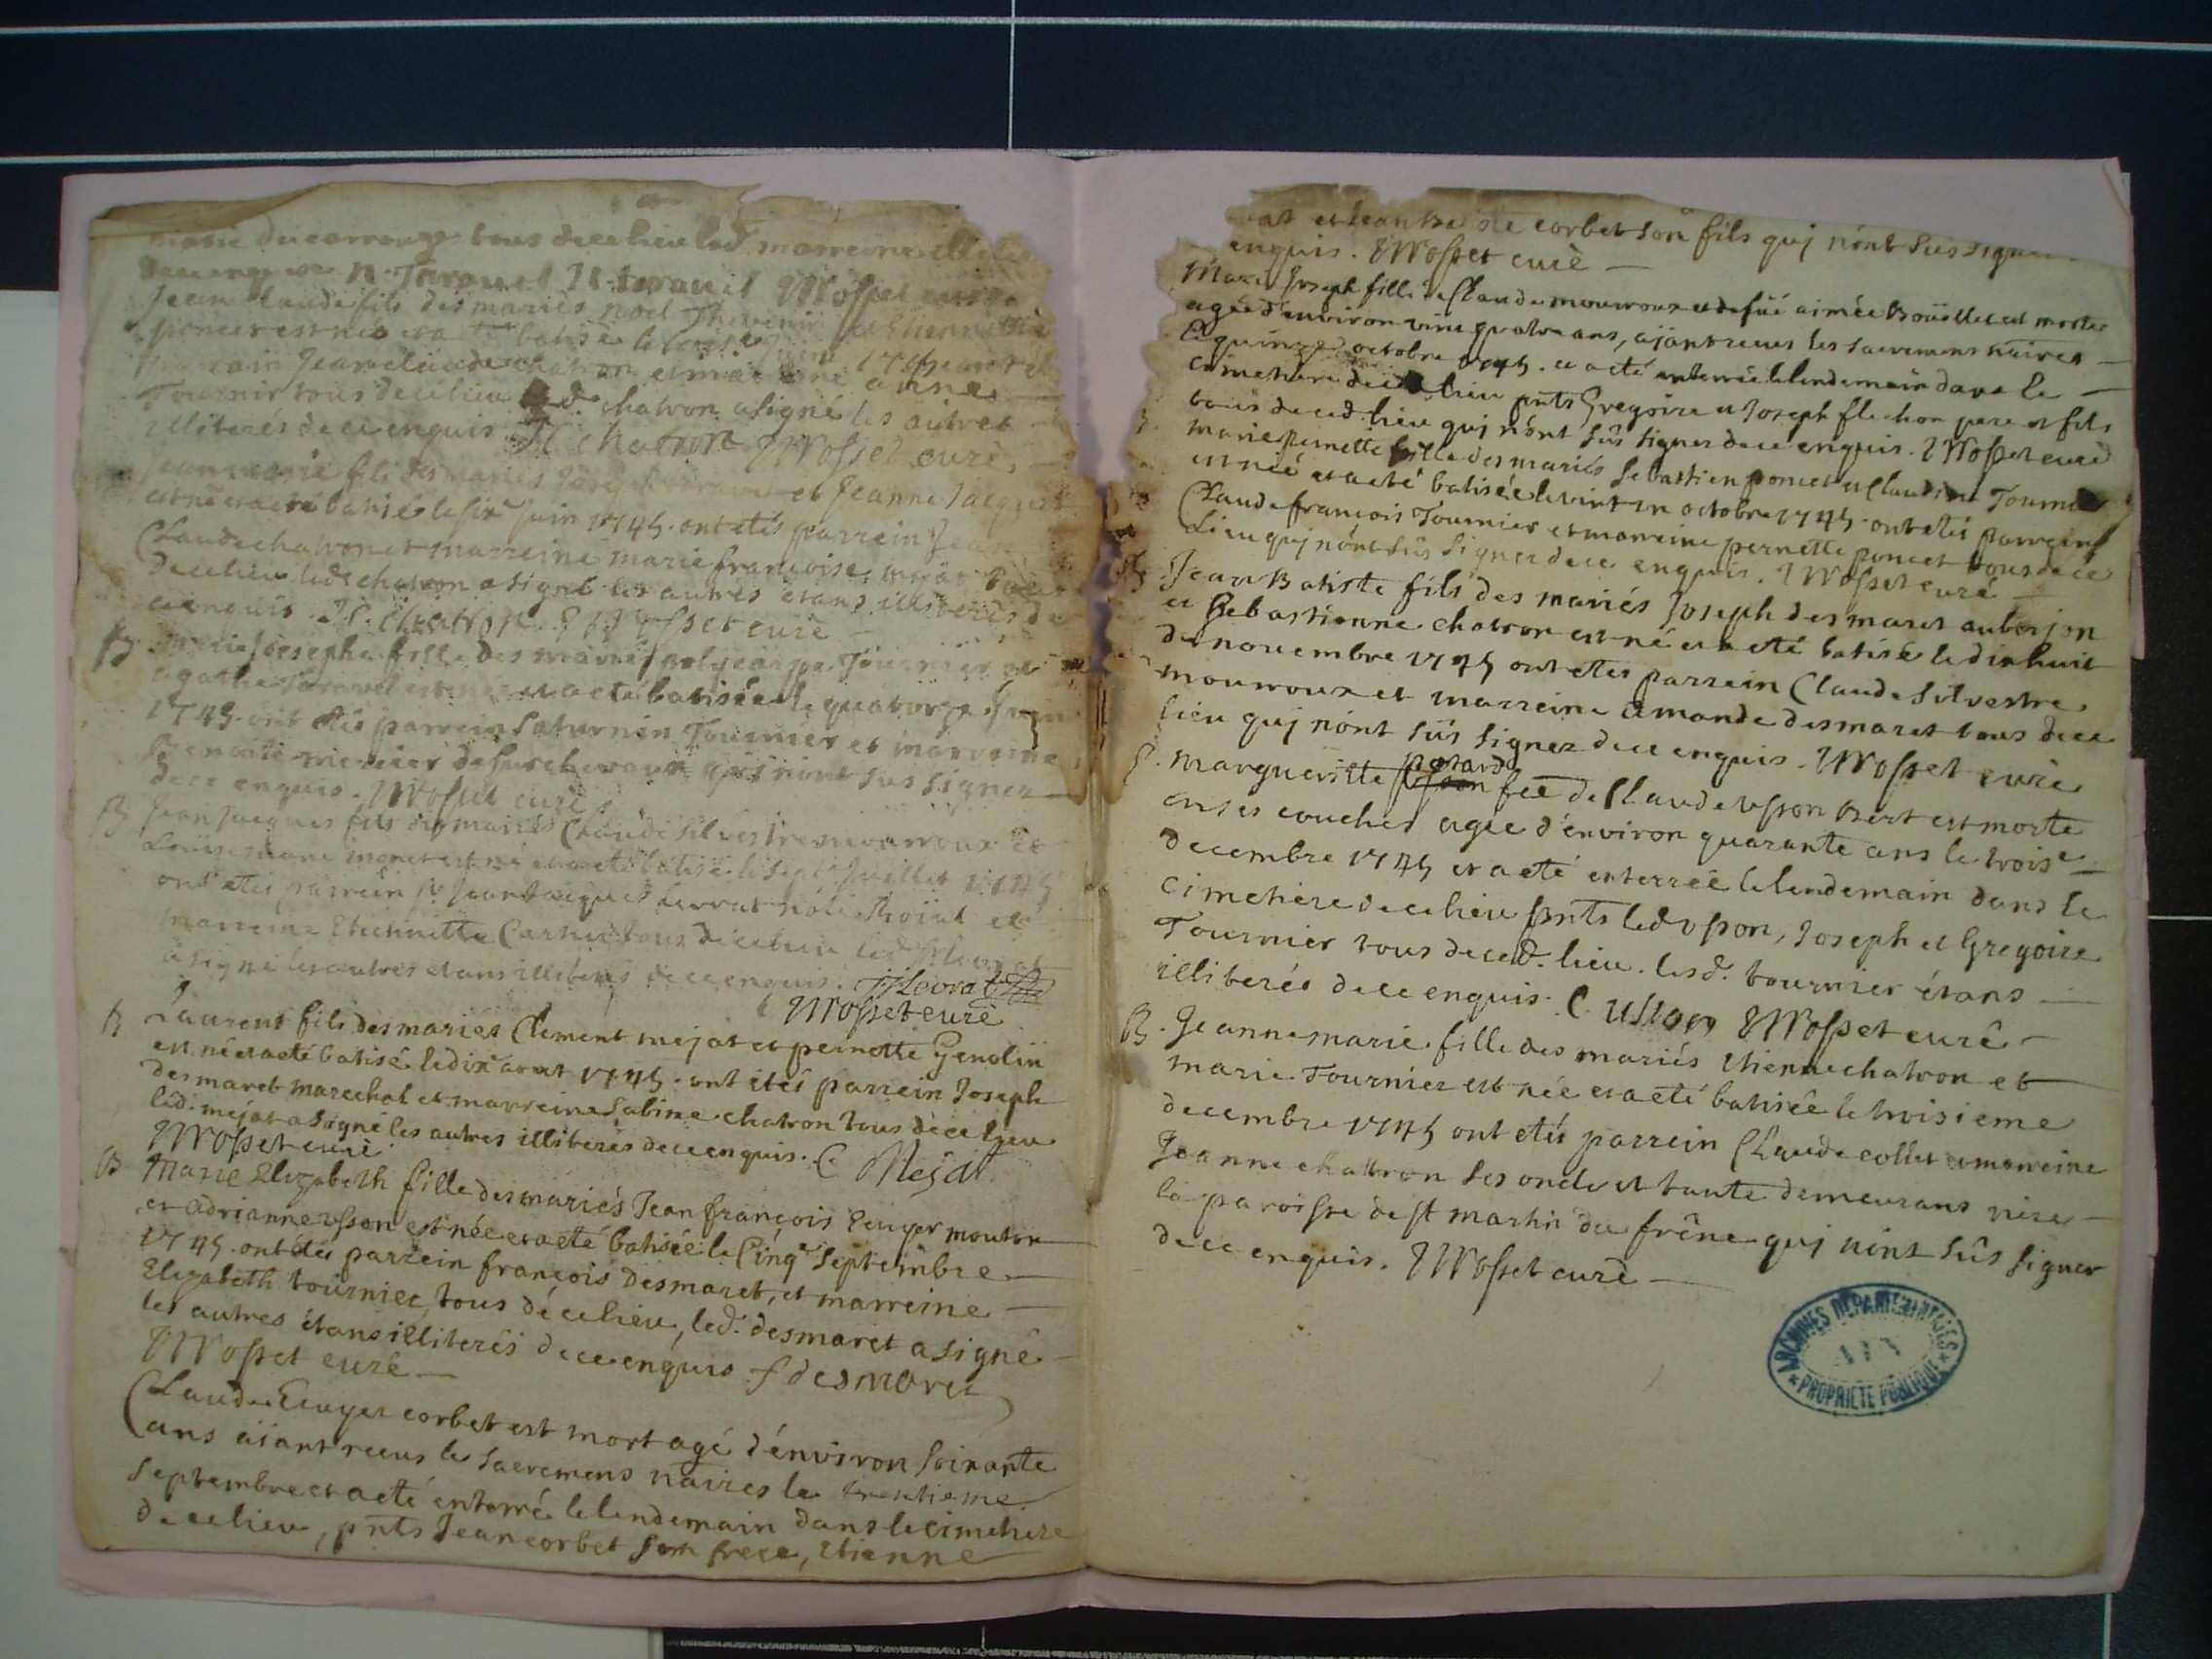 marie tous de ce lieu lad. marreine
enquise n. Taravel Mosset curé
Jean Claude fils des mariés noel Thevenin
poncet est né et a eté batisé le juin
parrain Jean claude chatron et marreine
Tournir tous de ce lieu led. chatron a signé les autres
illiterés de ce enquis chatron Mosset curé
Jean marie fils des mariés et Jeanne Jacquet
est né et a eté batisé le six.e juin 1745. ont etés parrein Jean
Claude chatron et marreine marie françoise
de ce lieu led. chatron a signé les autres etans illiterés de
ce enquis. chatron Mosset curé
B marie Josephe fille des mariés polycarpe Tournier et
agathe Taravel est née et a eté batisée le quatorze juin
1745. ont etés parrein Saturnin Tournier et marreine
Benoite de qui n'ont sus signer
de ce enquis. Mosset curé
B Jean Jacques fils des mariés Claude Silvestre mourroux et
Louise marie monet est né et a eté batisé le sept juillet 1745
ont etés parrein sr. Jean Jacques Levrat et
marreine Etiennette tous de ce lieu led. sr. Levrat
a signé les autres etans illiterés de ce enquis. JJ Levrat
Mosset curé
B Laurent fils des mariés Clement mejat et pernette Genolin
est né et a eté batisé le dix aout 1745. ont etés parrein Joseph
desmaret marechal et marreine Sabine chatron tous de ce lieu
led. mejat a signé les autres illiterés de ce enquis. C Mejat
Mosset curé
B Marie Elizabeth fille des mariés Jean françois Ecuyer mouton
et adrianne usson est née et a eté batisée le Cinq.e Septembre
1745. ont etés parrein françois Desmaret, et marreine
Elizabeth tournier, tous de ce lieu, led. desmaret a signé
les autres étans illiterés de ce enquis f desmaret
Mosset curé
Claude Ecuyer corbet est mort agé d'environ soixante
ans aiant receus les Sacremens n̄aires le trentieme
Septembre et a eté enterré le lendemain dans le cimetiere
de ce lieu, pn̄ts Jean corbet son frere, etienne
corbet son fils quj n'ont sus signer
enquis. Mosset curé
Marie Joseph fille de Claude mourroux et de fuë aimée Boüillet est morte
agée d'environ vint quatre ans, ajant receus les sacremens n̄aires
le quinze octobre 1745. et a eté enterrée le lendemain dans le
cimetiere de ce lieu pn̄ts Gregoire et Joseph flechon pere et fils
tous de ced. lieu quj n'ont sûs signer de ce enquis. Mosset curé
marie pernette fille des mariés Sebastien poncet et Claudine Tournier
est née et a eté batisée le vint un octobre 1745. ont etés parrein
Claude françois Tournier et marreine pernette poncet tous de ce
Lieu quj n'ont sûs signer de ce enquis. Mosset curé
B Jean Batiste fils des mariés Joseph desmaret auberjon
et Sebastienne chatron est né et a eté batisé le dixhuit
de novembre 1745 ont etés parrein Claude Silvestre
mourroux et marreine amande desmaret tous de ce
lieu quj n'ont sûs signer de ce enquis. Mosset curé
S. marguerite perard fēē de Claude Usson Bert est morte
en ses couches agée d'environ quarante ans le trois.e
decembre 1745 et a eté enterrée le lendemain dans le
cimetiere de ce lieu pn̄ts led. Usson, Joseph et Gregoire
Tournier tous de ced. lieu. lesd. tournier étans
illiterés de ce enquis. C usson Mosset curé
B. Jeanne marie fille des mariés etienne chatron et
marie Tournier est née et a eté batisée le troisieme
decembre 1745 ont etés parrein Claude collet et marreine
Jeanne chattron ses oncle et tante demeurans riere
la paroisse de st martin du frêne quj n'ont sûs signer
de ce enquis. Mosset curé
ARCHIVES DEPARTEMENTALES
AIN
* PROPRIETE PUBLIQUE *